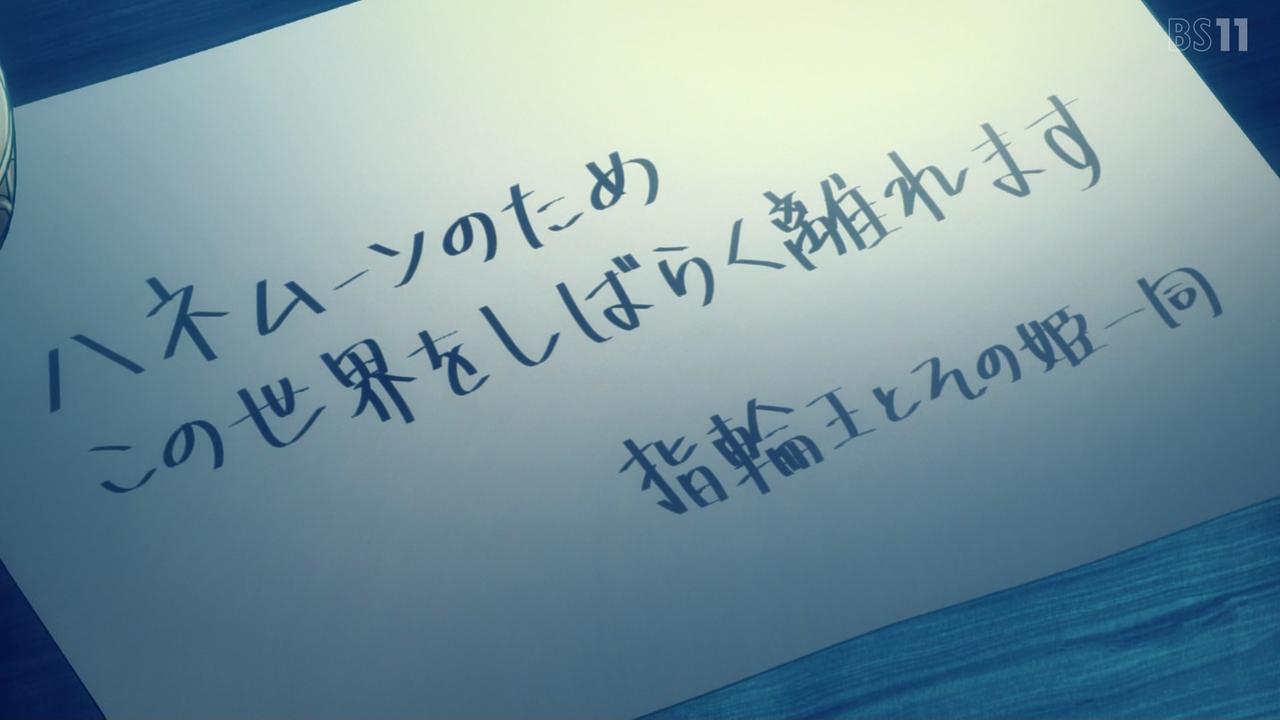 BS11
ハネムーンのため
この世界をしばらく離れます
指輪王とその姫一同